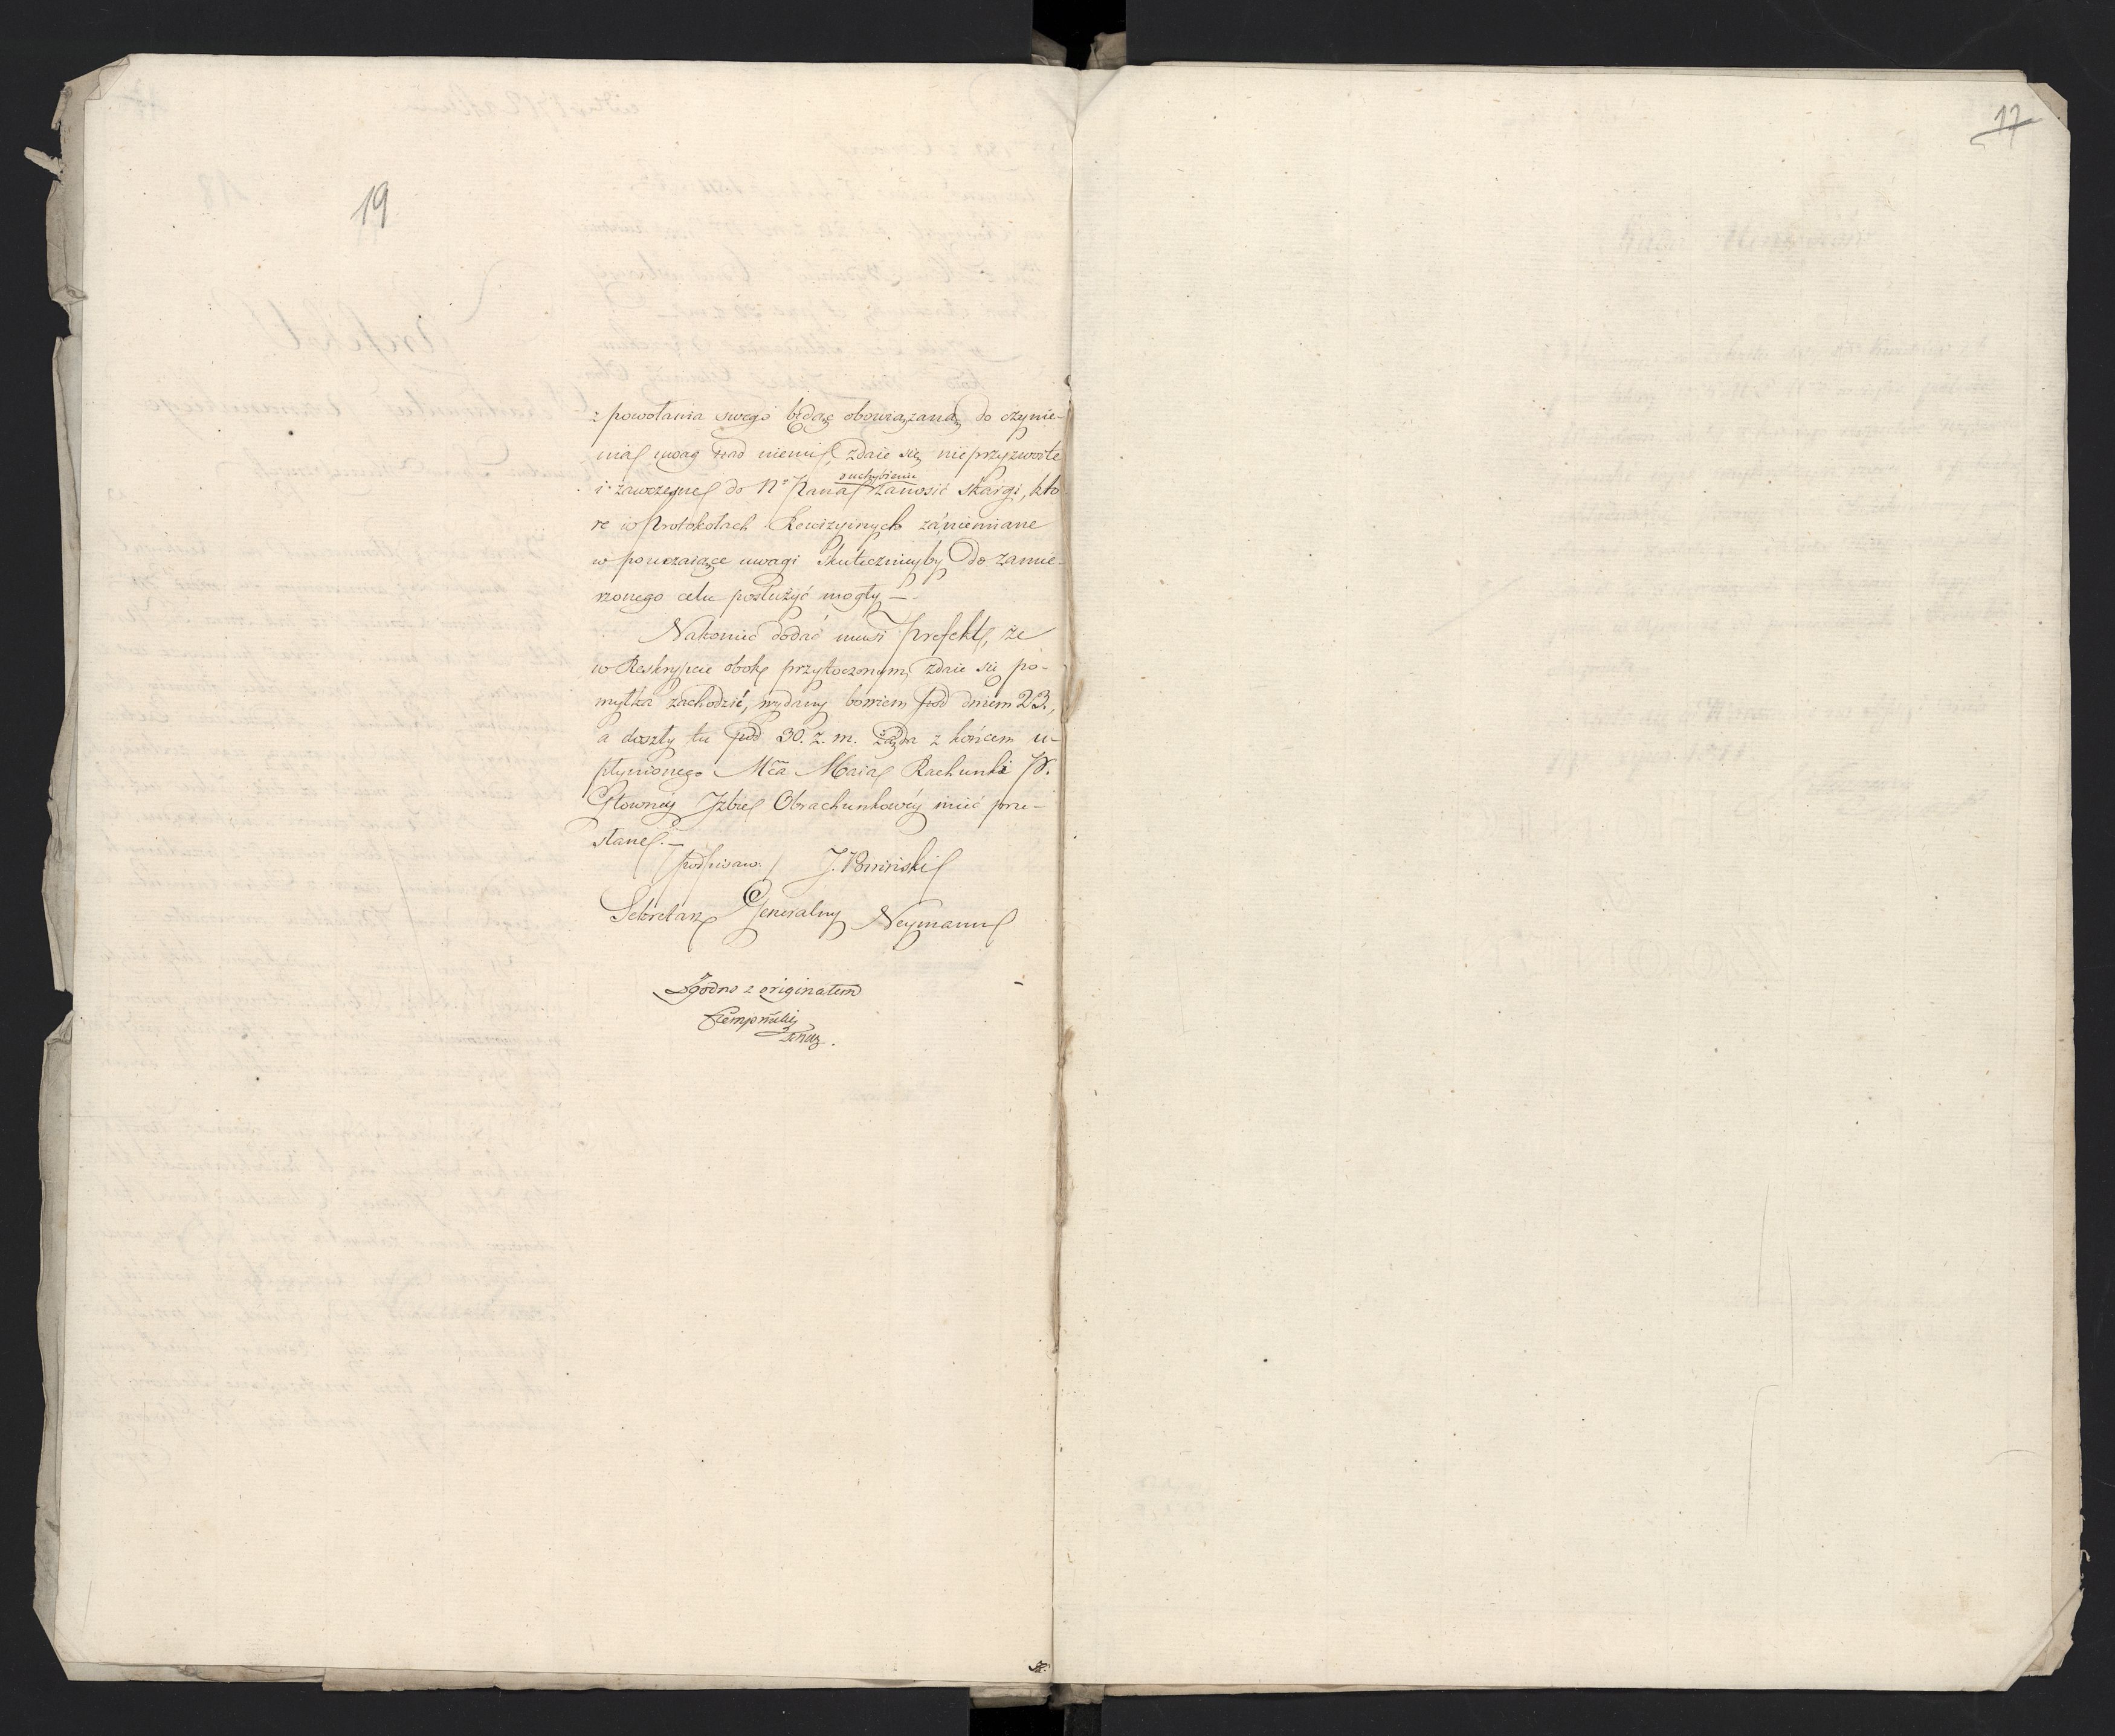 19
17
z powołania swego będąc obowiązaną do czynie-
nia uwag nad niemi, zdaie się nieprzyzwoite
o uchybienie
i zawczesne do Nº Pana zanosić skargi, kto
re w Protokołach Rewizyinych zamieniane
w pouczaiące uwagi skutecznieyby do zamie-
rzonego celu posłużyć mogły —
Nakoniec dodać musi Prefekt, że
w Reskrypcie obok przytoczonym, zdaie się po-
myłka zachodzić, wydany bowiem pod dniem 23.,
a doszły tu pod 30. z. m. żąda z końcem u-
płynionego Mca Maia Rachunki
Głowney Izbie Obrachunkowéy mieć prze-
słane. —
/podpisano/ J. Poniński
Sekretarz Generalny Neymann
Zgodno z originałem